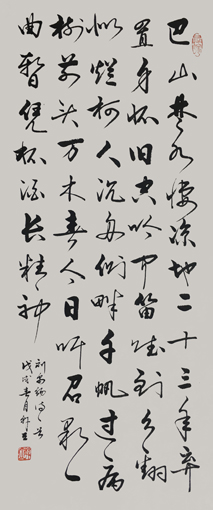 巴山楚水凄涼地二十三年弃
置身怀旧空吟闻笛赋到乡翻
似爛柯人沉舟侧畔千帆过病
树前头万木春今日听君歌一
曲暫凭杯酒长精神
刘禹锡诗一首
戊戌春月